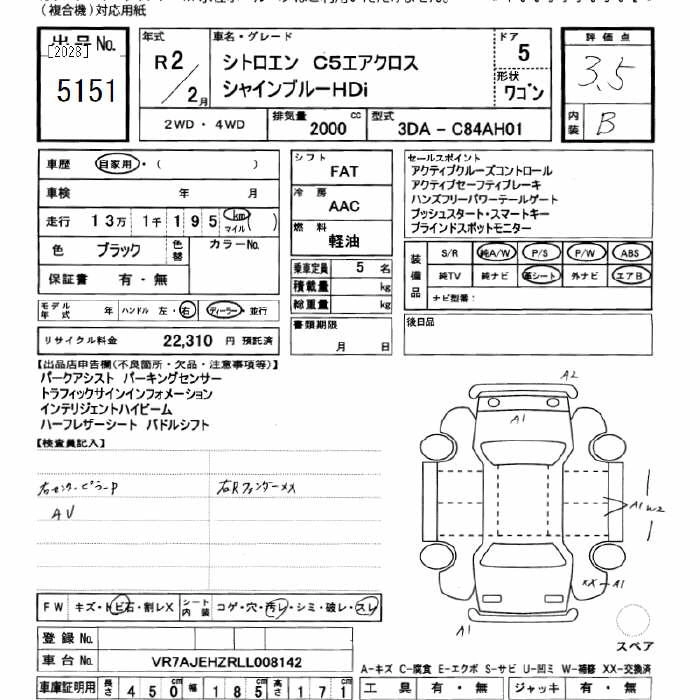 (複合機)対応用紙
出品No.
[2028]
5151
年式
R2/2月
車名・グレード
シトロエン C5エアクロス
シャインブルーHDi
ドア
5
形状
ワゴン
評価点
3.5
内装
B
2WD・4WD
排気量 2000 cc
型式 3DA - C84AH01
車歴 自家用・( )
車検 年 月
走行 13万 1千 195 km マイル ( )
色 ブラック 色替 カラーNo.
保証書 有・無
シフト
FAT
冷房
AAC
燃料
軽油
乗車定員 5 名
積載量 kg
総重量 kg
書類期限
月 日
セールスポイント
アクティブクルーズコントロール
アクティブセーフティブレーキ
ハンズフリーパワーテールゲート
プッシュスタート・スマートキー
ブラインドスポットモニター
装備品
S/R 純A/W P/S P/W ABS
純TV 純ナビ 革シート 外ナビ エアB
ナビ型番:
後日品
モデル年式 年 ハンドル 左・右 ディーラー・並行
リサイクル料金 22,310 円 預託済
【出品店申告欄(不良箇所・欠品・注意事項等)】
パークアシスト パーキングセンサー
トラフィックサインインフォメーション
インテリジェントハイビーム
ハーフレザーシート パドルシフト
【検査員記入】
右センターピラーP
AV
右Rフェンダーメス
A2
A1
A1 W2
XX-A1
A1
FW キズ・トビ石・割レX シート内装 コゲ・穴・汚レ・シミ・破レ・スレ
スペア
登録No.
車台No. VR7AJEHZRLL008142
A-キズ C-腐食 E-エクボ S-サビ U-凹ミ W-補修 XX-交換済
車庫証明用 長さ 450 cm 幅 185 cm 高さ 171 cm
工具 有・無 ジャッキ 有・無